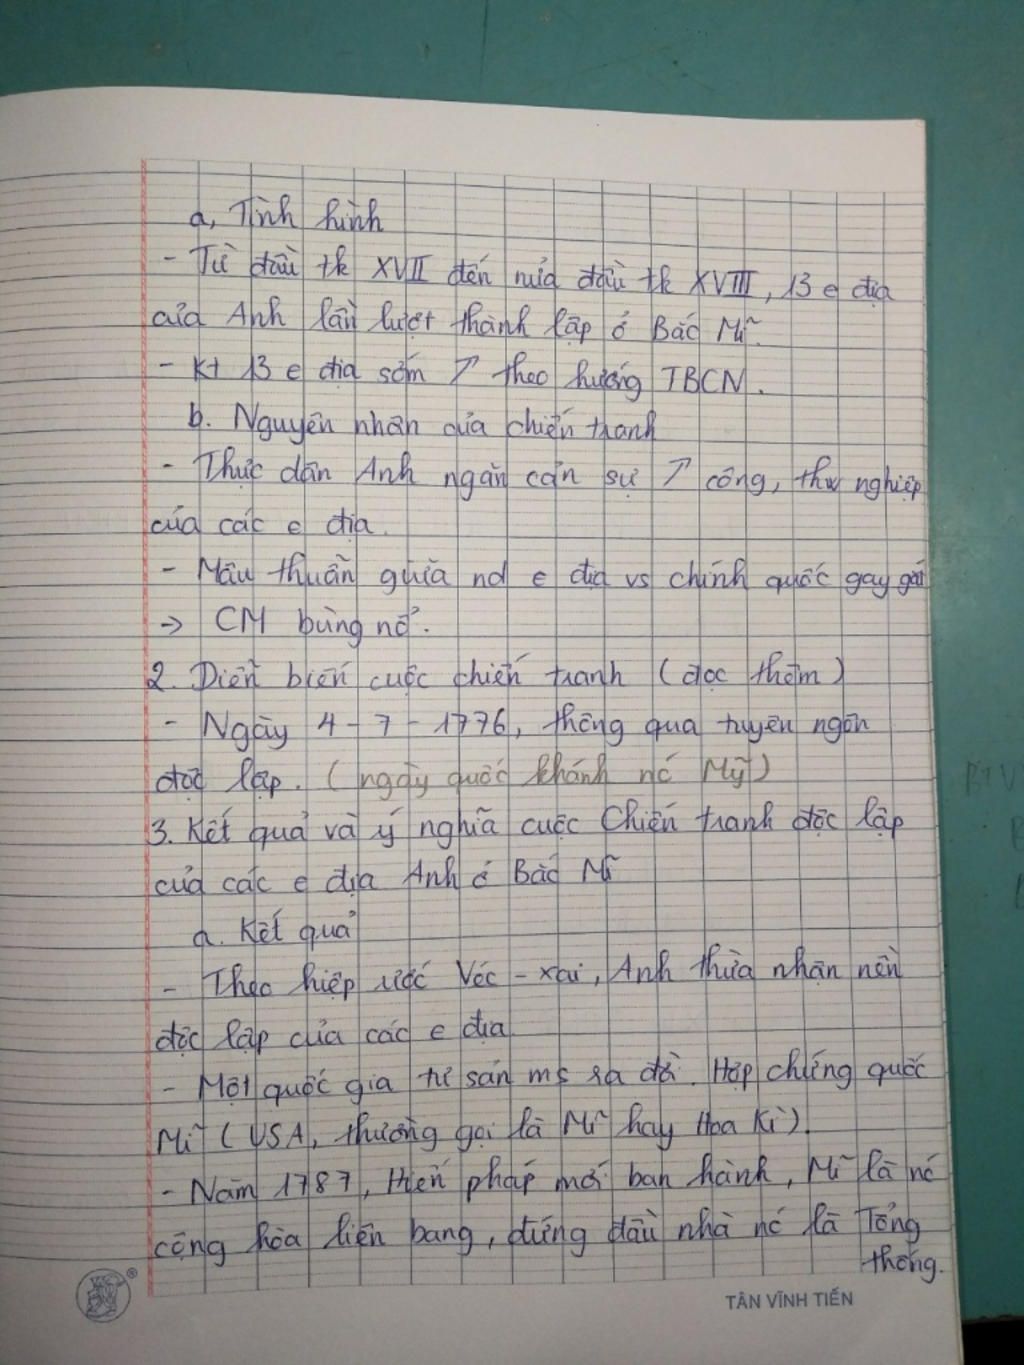 a, Tình hình
- Từ đầu tk XVII đến nửa đầu tk XVIII, 13 e địa
của Anh lần lượt thành lập ở Bắc Mĩ.
- Kt 13 e địa sớm ↗ theo hướng TBCN.
b. Nguyên nhân của chiến tranh
- Thực dân Anh ngăn cản sự ↗ công, thư nghiệp
của các e địa.
- Mâu thuẫn giữa nd e địa vs chính quốc gay gắt
→ CM bùng nổ.
2. Diễn biến cuộc chiến tranh (đọc thêm)
- Ngày 4 - 7 - 1776, thông qua tuyên ngôn
độc lập. (ngày quốc khánh nc Mỹ)
3. Kết quả và ý nghĩa cuộc Chiến tranh độc lập
của các e địa Anh ở Bắc Mĩ
a. Kết quả
- Theo hiệp ước Véc - xai, Anh thừa nhận nền
độc lập của các e địa
- Một quốc gia tư sản ms ra đời. Hợp chúng quốc
Mĩ (USA, thường gọi là Mĩ hay Hoa Kì).
- Năm 1787, Hiến pháp mới ban hành, Mĩ là nc
cộng hòa liên bang, đứng đầu nhà nc là Tổng
thống.
TÂN VĨNH TIẾN